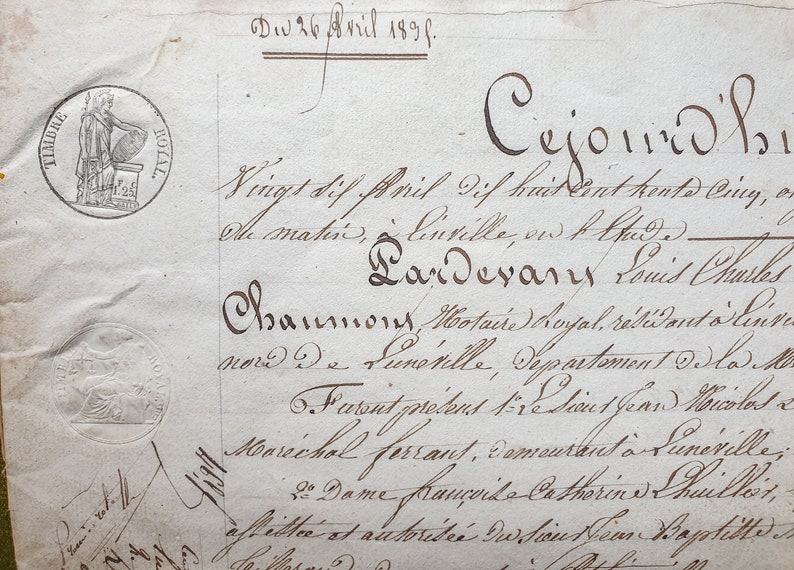 Du 26 Avril 1835.
TIMBRE ROYAL.
Cejourd'hui
Vingt six Avril dix huit cent trente cinq,
du matin, à Einville, en l'Etude
Pardevant Louis Charles
Chaumont, Notaire Royal, résidant à Einville
nord de Lunéville, département de la
Furent présens 1° Le Sieur Jean Nicolas
Maréchal ferrant, demeurant à Lunéville;
2° Dame françoise Catherine Lhuillier,
assistée et autorisée du Sieur Jean Baptiste